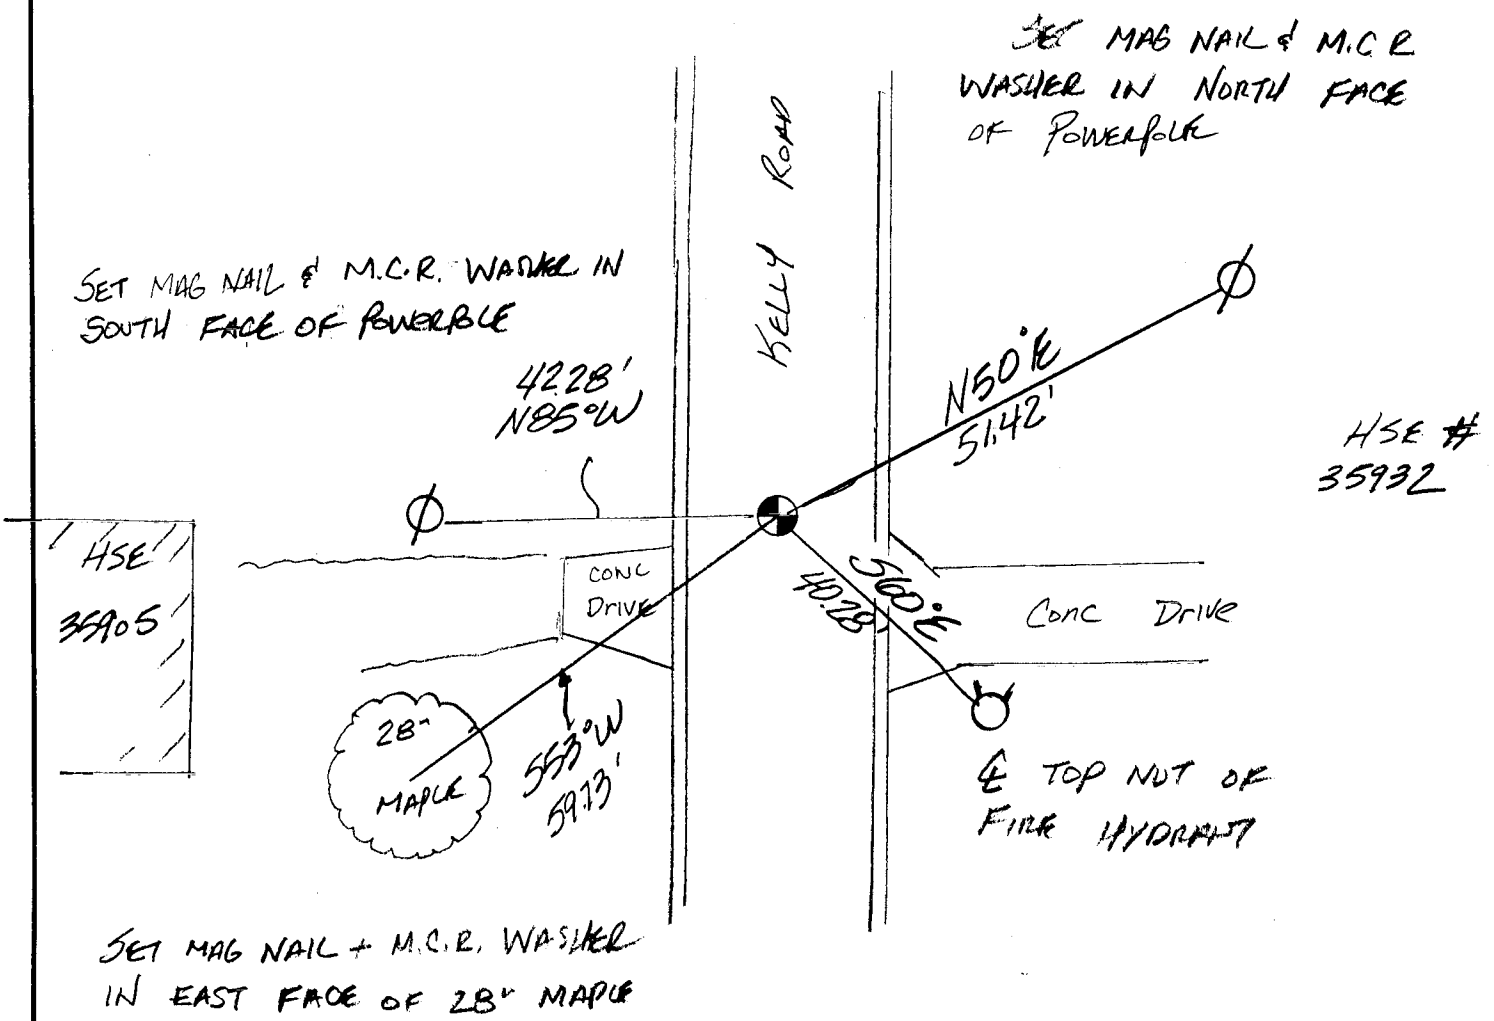 SET MAG NAIL & M.C.R
WASHER IN NORTH FACE
OF POWERPOLE
KELLY ROAD
SET MAG NAIL & M.C.R. WASHER IN
SOUTH FACE OF POWERPOLE
42.28'
N85°W
N50°E
51.42'
HSE #
35932
HSE
35905
CONC
Drive
S60°E
40.28'
Conc Drive
28"
MAPLE
S53°W
59.73'
℄ TOP NUT OF
FIRE HYDRANT
SET MAG NAIL + M.C.R. WASHER
IN EAST FACE OF 28" MAPLE